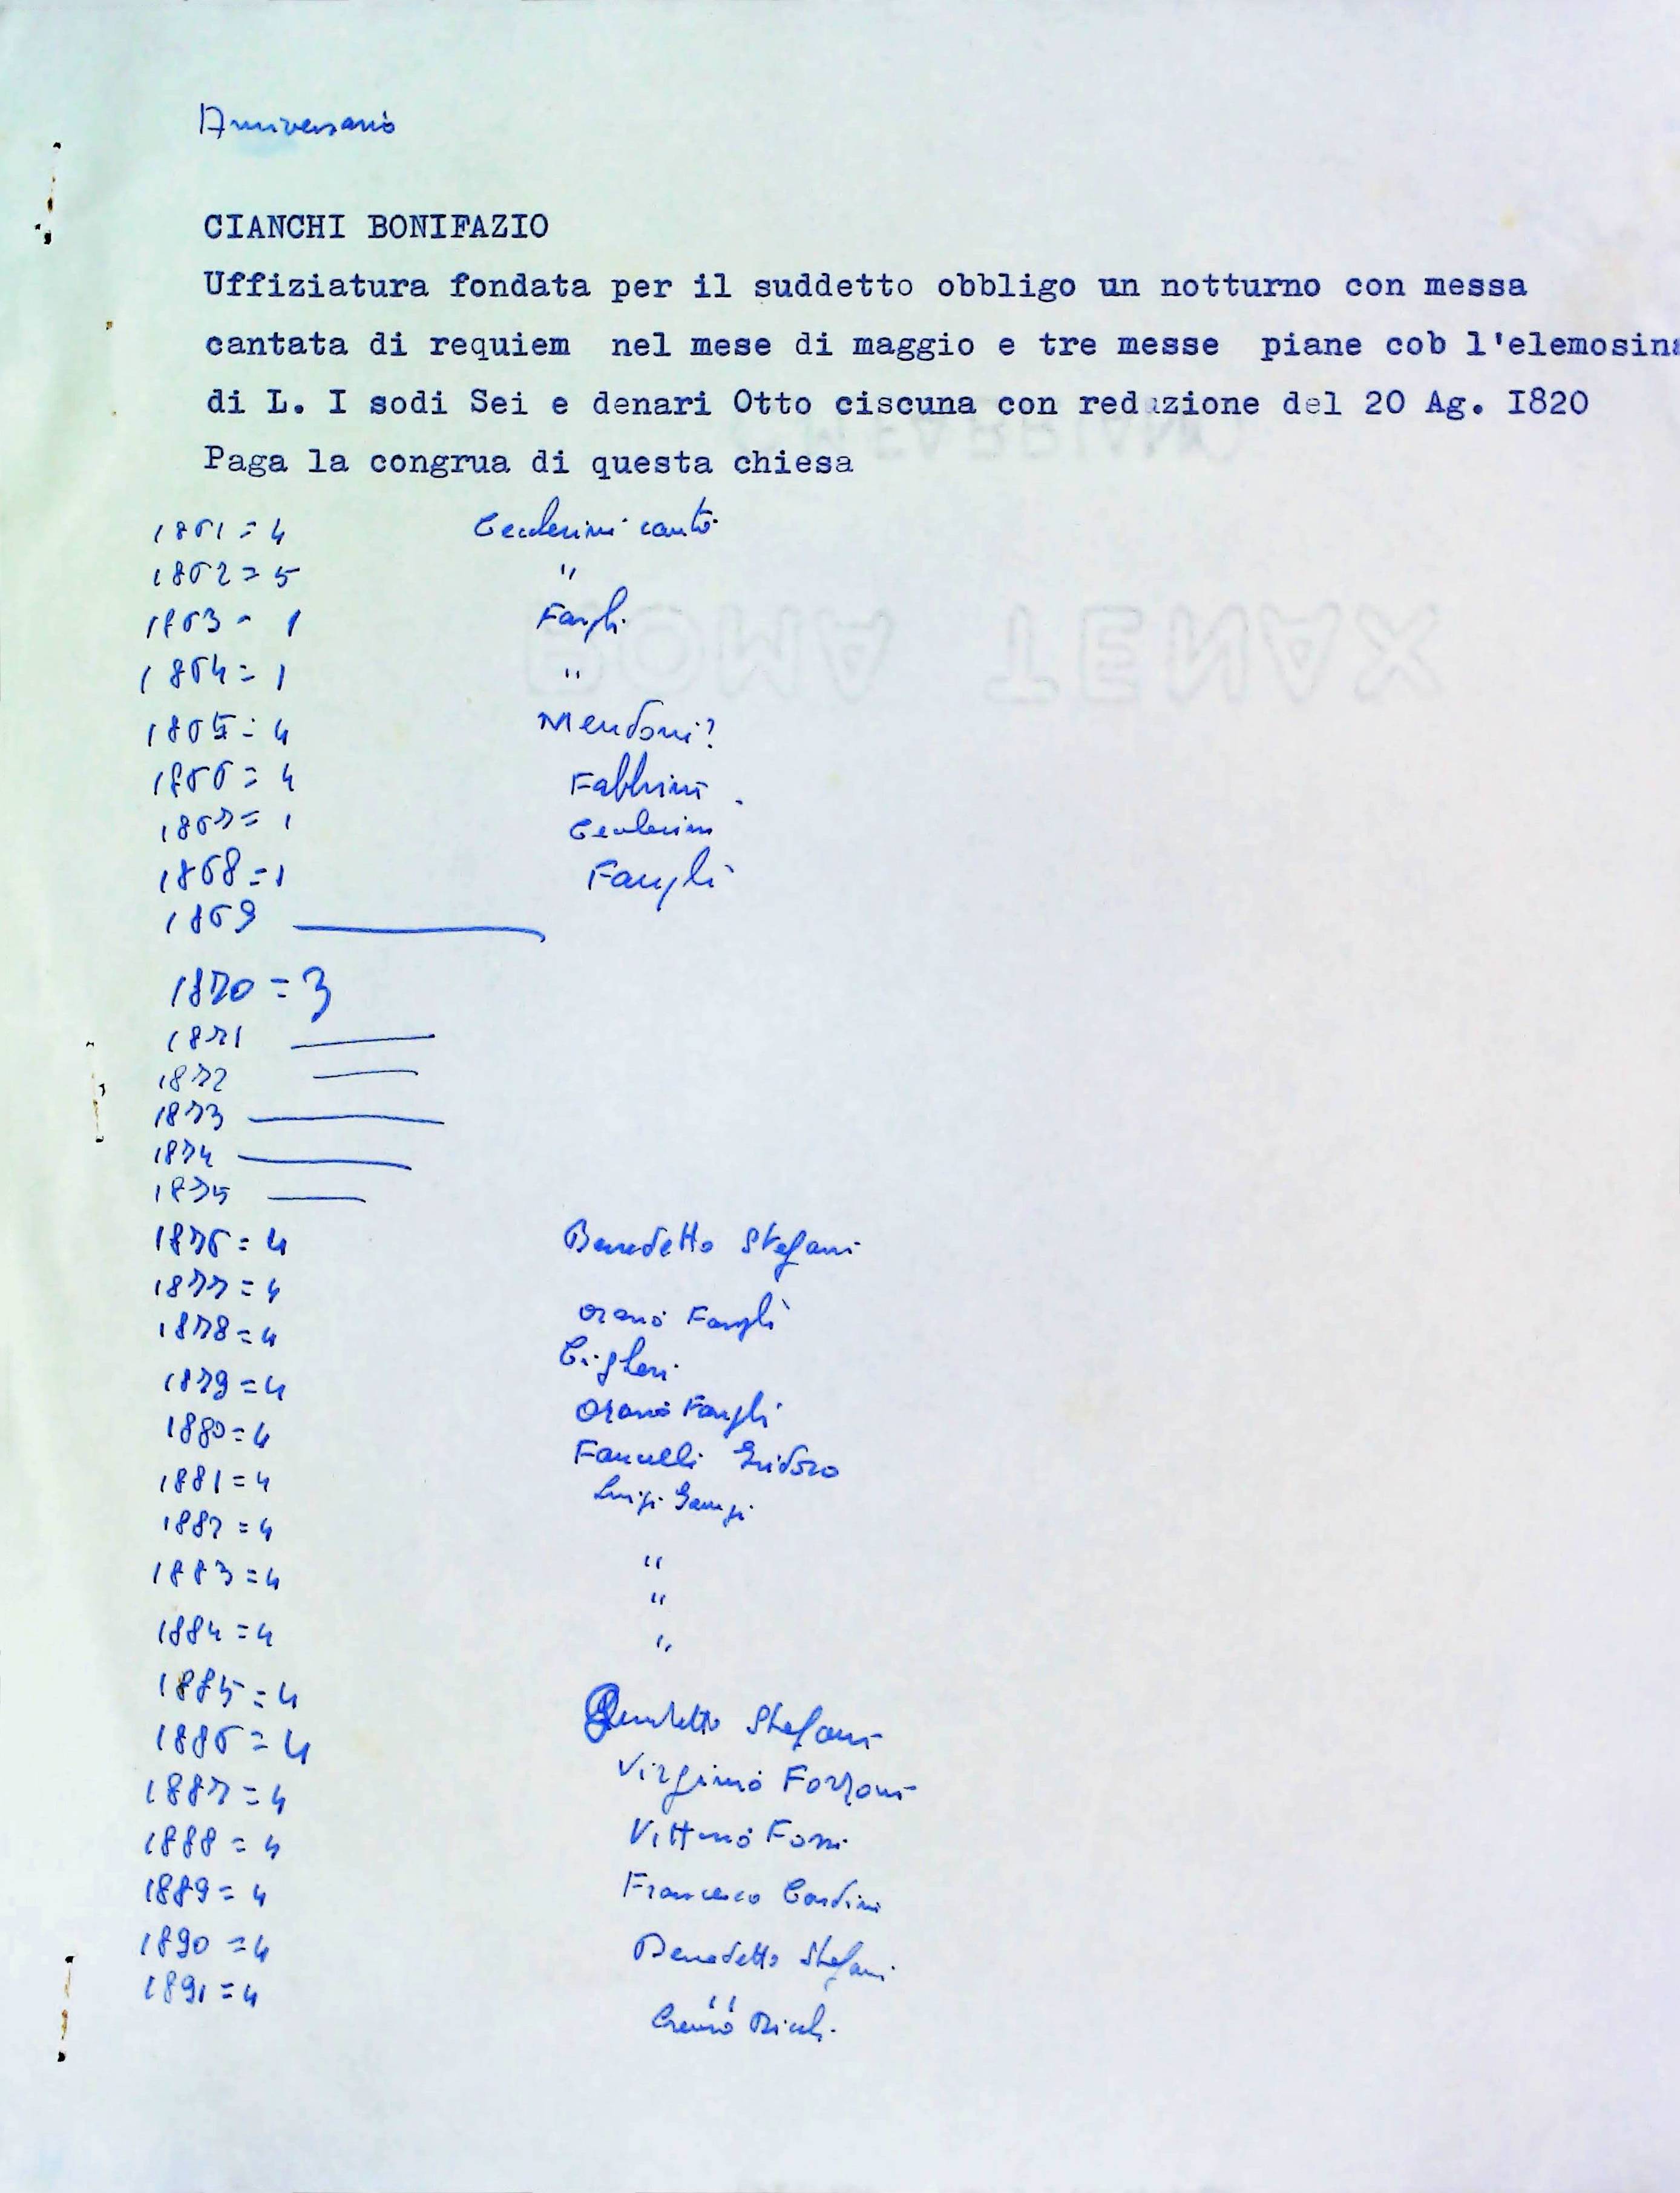 Anniversario
CIANCHI BONIFAZIO
Uffiziatura fondata per il suddetto obbligo un notturno con messa
cantata di requiem nel mese di maggio e tre messe piane cob l'elemosina
di L. I sodi Sei e denari Otto ciscuna con reduzione del 20 Ag. I820
Paga la congrua di questa chiesa
1861 = 4 cantò
1862 = 5 "
1863 - 1 Fangli
1864 = 1 "
1865 = 4 Mendoni?
1866 = 4 Fabbrini
1867 = 1
1868 = 1 Fangli
1869
1870 = 3
1871
1872
1873
1874
1875
1876 = 4 Benedetto Stefani
1877 = 4
1878 = 4 Fangli
1879 = 4
1880 = 4 Fangli
1881 = 4 Fanulli
1882 = 4 Luigi
1883 = 4 "
1884 = 4 "
"
1885 = 4
1886 = 4 Benedetto Stefani
1887 = 4 Virginio Forzoni
1888 = 4 Vittorio Fossi
1889 = 4 Francesco Cardini
1890 = 4 Benedetto Stefani
1891 = 4 "
ROMA TENAX
C M FABRIANO